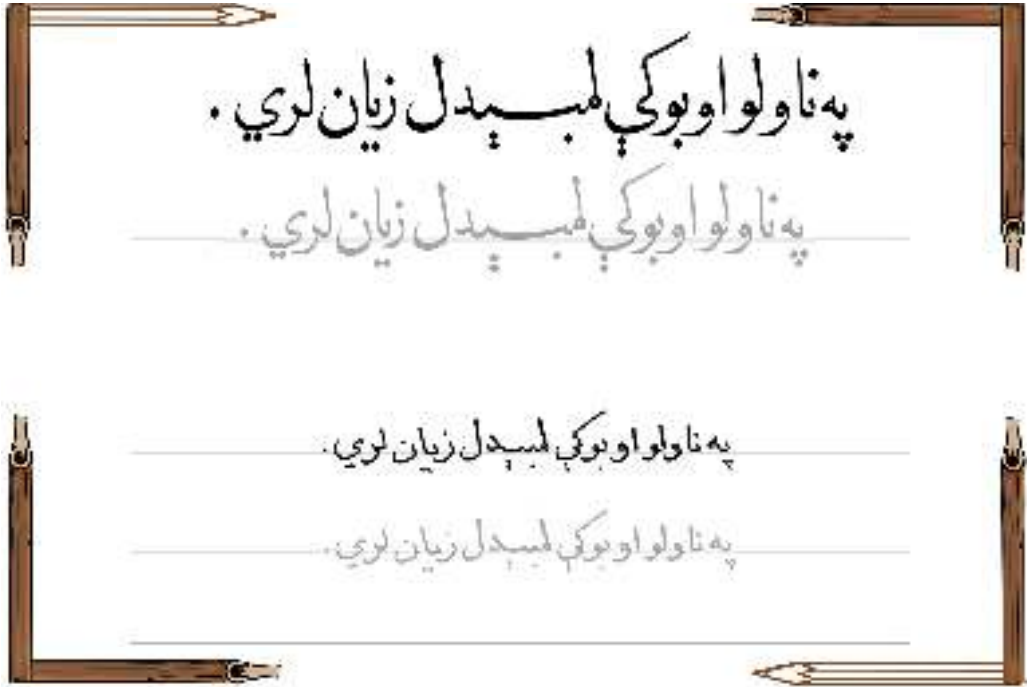 په ناولو اوبو کې لمبېدل زيان لري .
په ناولو اوبو کې لمبېدل زيان لري .
په ناولو اوبو کې لمبېدل زيان لري .
په ناولو اوبو کې لمبېدل زيان لري .